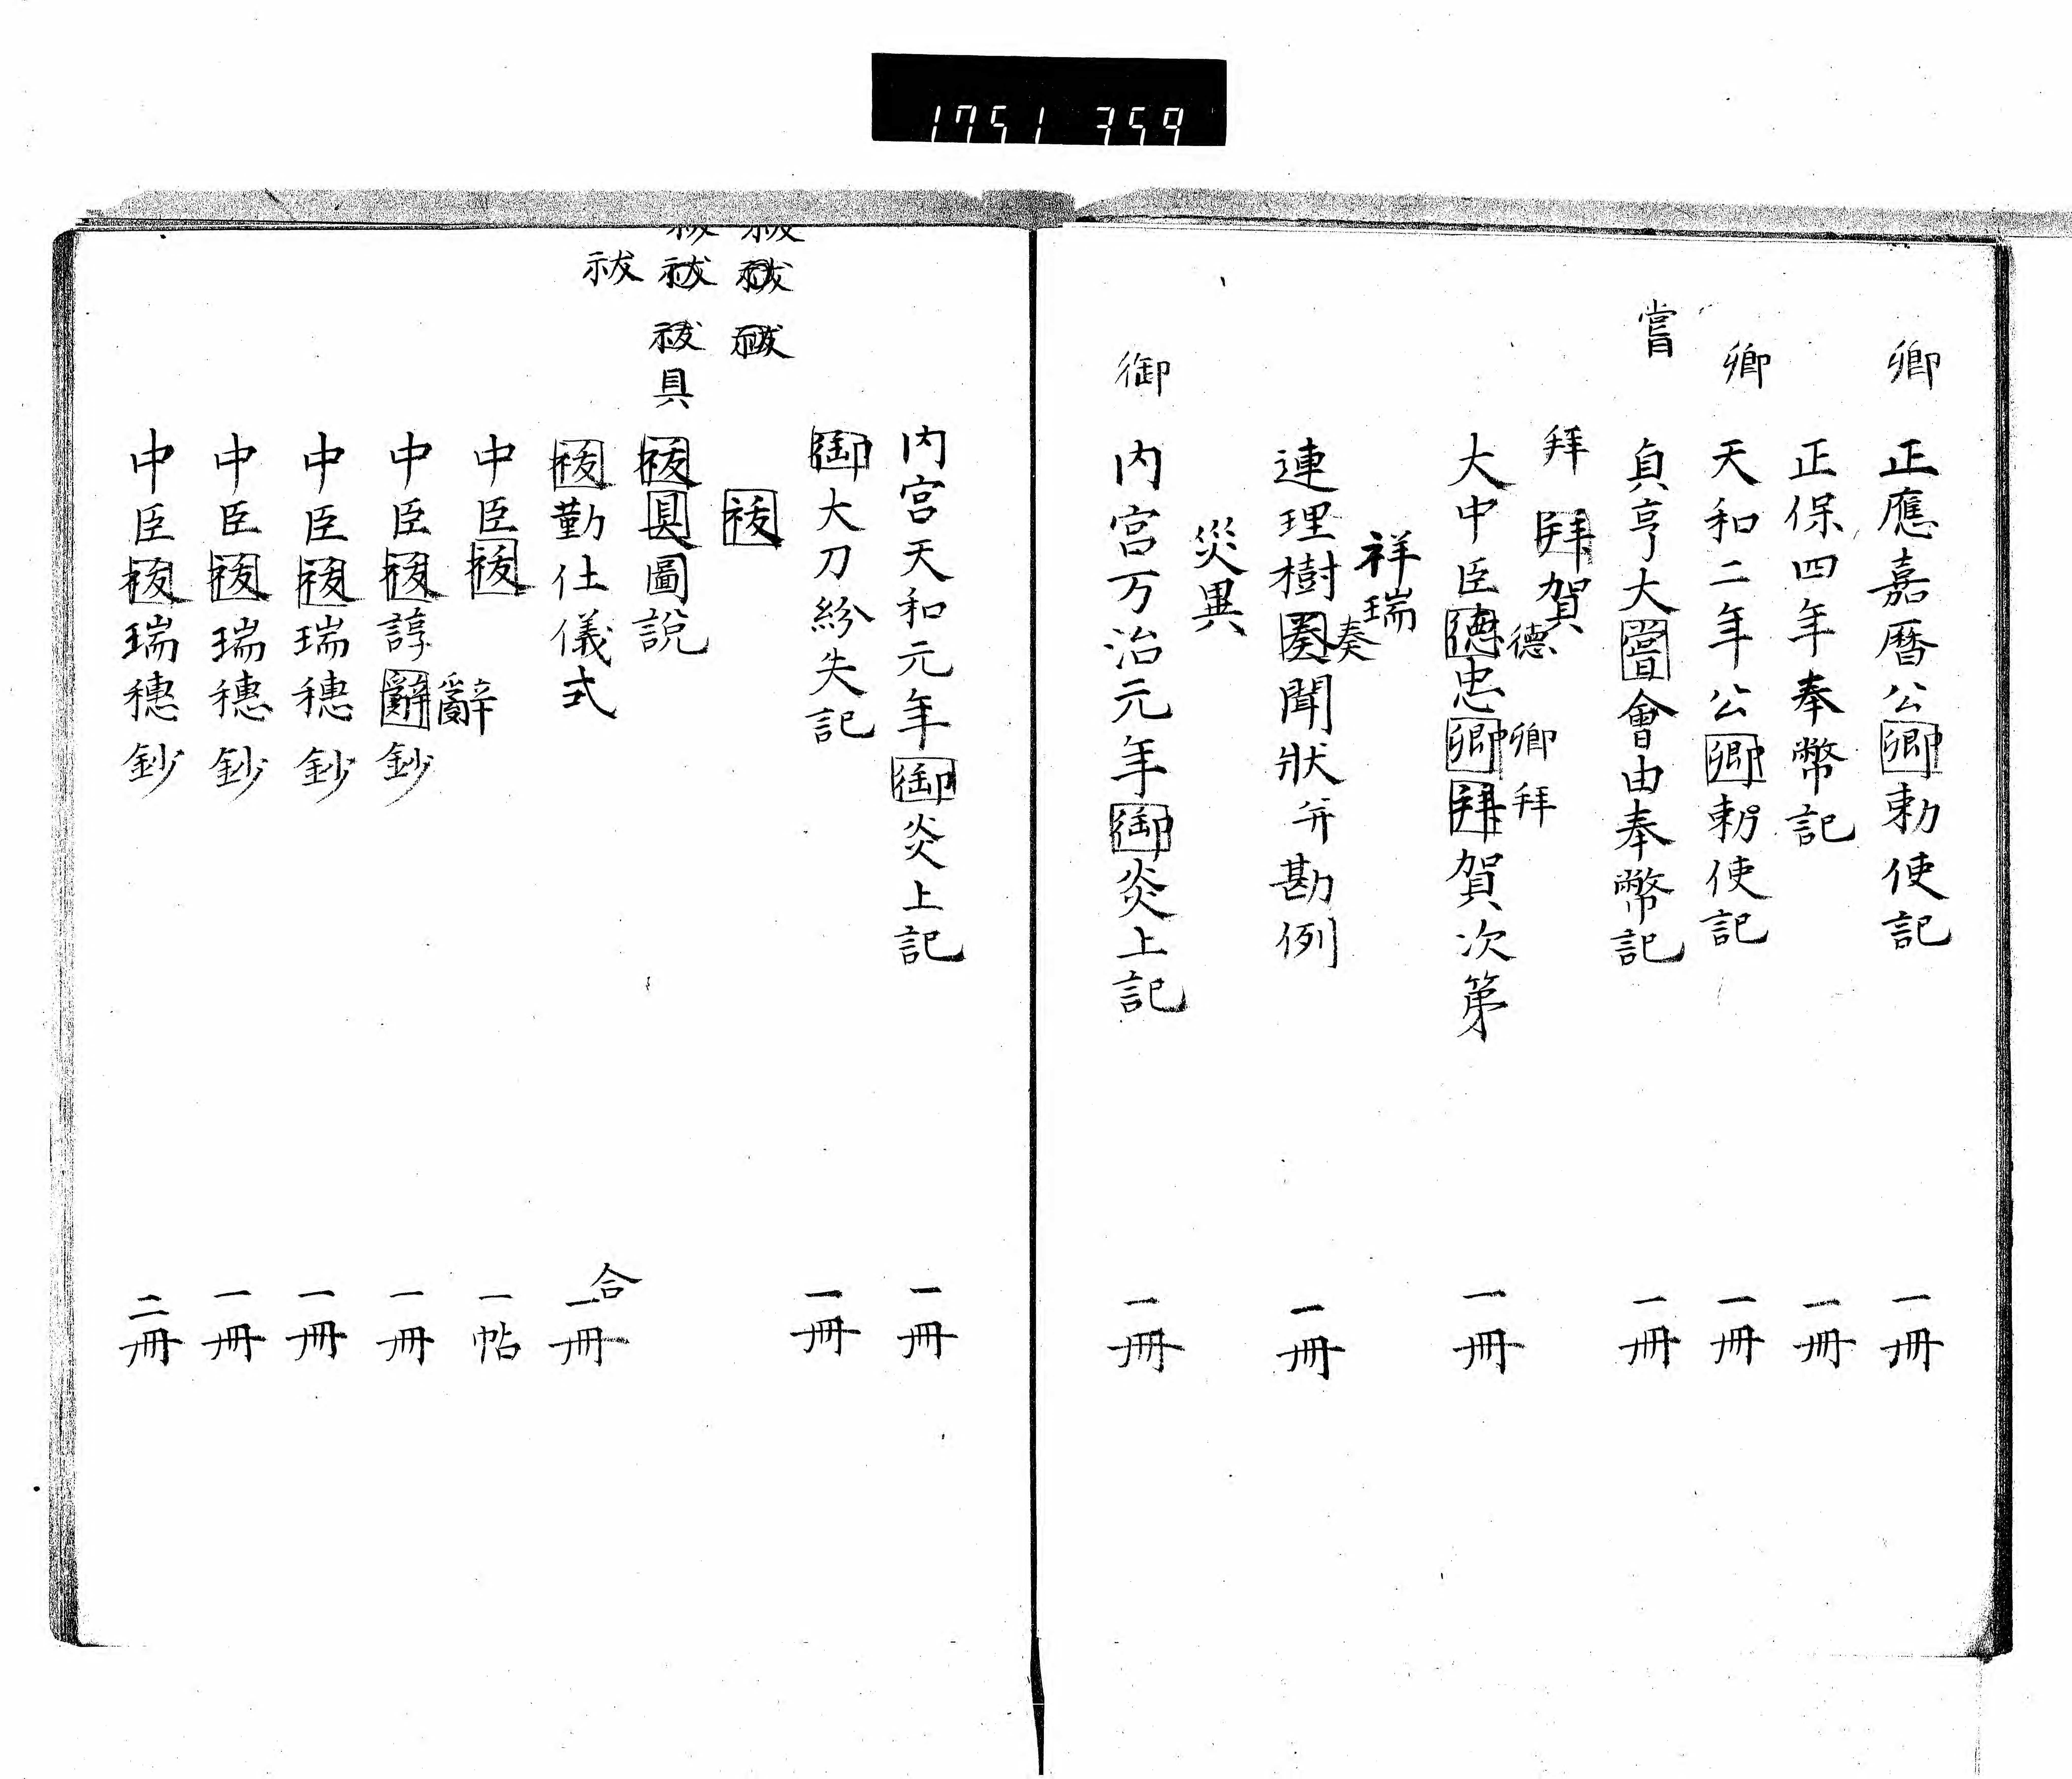 1751 359
卿
正應嘉曆公卿勅使記 一冊
正保四年奉幣記 一冊
卿
天和二年公卿勅使記 一冊
嘗
貞享大嘗會由奉幣記 一冊
拜
拜賀
德 卿 拜
大中臣德忠卿拜賀次第 一冊
祥瑞
奏
連理樹奏聞狀并勘例 一冊
災異
御
内宮万治元年御炎上記 一冊
内宮天和元年御炎上記 一冊
御大刀紛失記 一冊
祓 祓 祓
祓
祓 祓 祓 具
祓具圖說
祓
祓勤仕儀式 合一冊
中臣祓 一帖
辭
中臣祓諄辭鈔 一冊
中臣祓瑞穗鈔 一冊
中臣祓瑞穗鈔 一冊
中臣祓瑞穗鈔 二冊